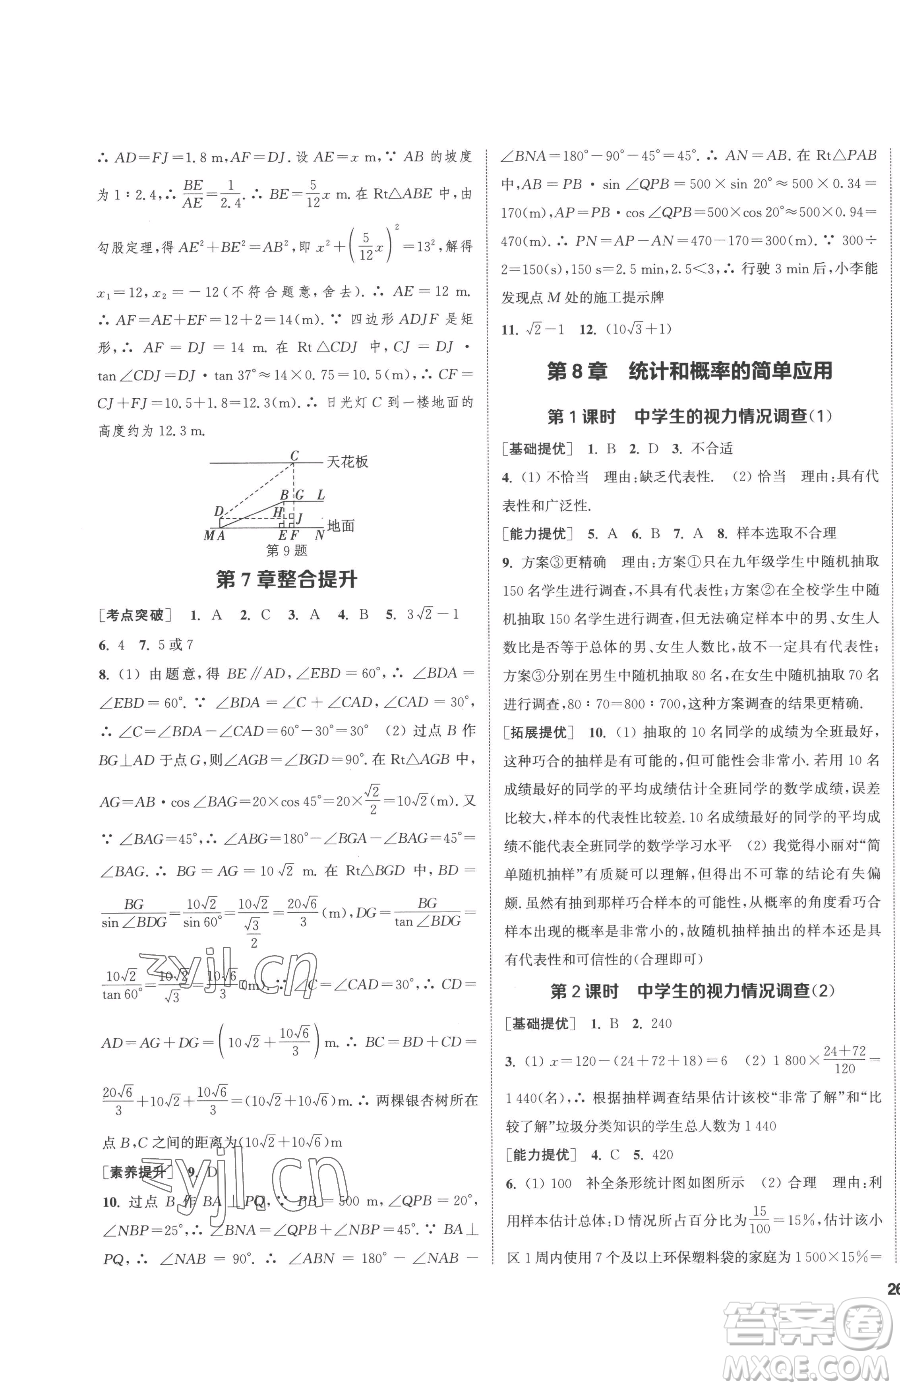 ∴ AD=FJ=1.8 m,AF=DJ. 设 AE=x m,∵ AB 的坡度
为 1∶2.4,∴ BE/AE=1/2.4.∴ BE=5/12x m. 在 Rt△ABE 中,由
勾股定理,得 AE²+BE²=AB²,即 x²+(5/12x)²=13²,解得
x₁=12,x₂=-12(不符合题意,舍去).∴ AE=12 m.
∴ AF=AE+EF=12+2=14(m).∵ 四边形 ADJF 是矩
形,∴ AF=DJ=14 m. 在 Rt△CDJ 中,CJ=DJ·
tan∠CDJ=DJ·tan 37°≈14×0.75=10.5(m),∴ CF=
CJ+FJ=10.5+1.8=12.3(m).∴ 日光灯 C 到一楼地面的
高度约为 12.3 m.
C 天花板
B G L
D H J
M A E F N 地面
第 9 题
第 7 章整合提升
[考点突破] 1. A 2. C 3. A 4. B 5. 3√2-1
6. 4 7. 5 或 7
8. (1) 由题意,得 BE∥AD,∠EBD=60°,∴ ∠BDA=
∠EBD=60°.∵ ∠BDA=∠C+∠CAD,∠CAD=30°,
∴ ∠C=∠BDA-∠CAD=60°-30°=30° (2) 过点 B 作
BG⊥AD 于点 G,则∠AGB=∠BGD=90°. 在 Rt△AGB 中,
AG=AB·cos∠BAG=20×cos 45°=20×√2/2=10√2(m).又
∵ ∠BAG=45°,∴ ∠ABG=180°-∠BGA-∠BAG=45°=
∠BAG.∴ BG=AG=10√2 m. 在 Rt△BGD 中,BD=
BG/sin∠BDG=10√2/sin 60°=10√2/(√3/2)=20√6/3(m),DG=BG/tan∠BDG=
10√2/tan 60°=10√2/√3=10√6/3(m).∵ ∠C=∠CAD=30°,∴ CD=
AD=AG+DG=(10√2+10√6/3)m.∴ BC=BD+CD=
20√6/3+10√2+10√6/3=(10√2+10√6)m.∴ 两棵银杏树所在
点 B,C 之间的距离为(10√2+10√6)m
[素养提升] 9. D
10. 过点 B 作 BA⊥PQ,∵ PB=500 m,∠QPB=20°,
∠NBP=25°,∴ ∠BNA=∠QPB+∠NBP=45°.∵ BA⊥
PQ,∴ ∠NAB=90°.∴ ∠ABN=180°-∠NAB-
∠BNA=180°-90°-45°=45°.∴ AN=AB. 在 Rt△PAB
中,AB=PB·sin∠QPB=500×sin 20°≈500×0.34=
170(m),AP=PB·cos∠QPB=500×cos 20°≈500×0.94=
470(m).∴ PN=AP-AN=470-170=300(m).∵ 300÷
2=150(s),150 s=2.5 min,2.5<3,∴ 行驶 3 min 后,小李能
发现点 M 处的施工提示牌
11. √2-1 12. (10√3+1)
第 8 章 统计和概率的简单应用
第 1 课时 中学生的视力情况调查(1)
[基础提优] 1. B 2. D 3. 不合适
4. (1) 不恰当 理由:缺乏代表性. (2) 恰当 理由:具有代
表性和广泛性.
[能力提优] 5. A 6. B 7. A 8. 样本选取不合理
9. 方案③更精确 理由:方案①只在九年级学生中随机抽取
150 名学生进行调查,不具有代表性;方案②在全校学生中随
机抽取 150 名学生进行调查,但无法确定样本中的男、女生人
数比是否等于总体的男、女生人数比,不一定具有代表性;而
方案③分别在男生中随机抽取 80 名,在女生中随机抽取 70
名进行调查,80∶70=800∶700,这种方案调查结果更精确.
[拓展提优] 10. (1) 抽取的 10 名同学的成绩为全班最好,
这种巧合的抽样,有可能性,但可能性非常小,如果用这 10 名
成绩最好的同学的平均成绩估计全班同学的数学成绩,误差
比较大,样本的代表性比较差. 10 名成绩最好的同学的平均成
绩不能代替全班同学的数学学习水平 (2) 我觉得小丽对“简
单随机抽样”有质疑可以理解,但得出不可靠的结论有失偏
颇.尽管有抽到这样样本的可能性,从概率的角度看发生巧合
样本出现的概率是非常小的,故随机抽样抽出的样本还是具
有代表性和可信性的(合理即可)
第 2 课时 中学生的视力情况调查(2)
[基础提优] 1. B 2. 240
3. (1) x=120-(24+72+18)=6 (2) 1 800×(24+72)/120=
1 440(名),∴ 根据抽样调查结果估计该校“非常了解”和“比
较了解”垃圾分类知识的学生总人数为 1 440
[能力提优] 4. C 5. 420
6. (1) 100 补全条形统计图如图所示 (2) 合理 理由:利
用样本估计总体;D 情况所占百分比为 15/100=15%,估计该小
区 1 周内使用 7 个及以上环保塑料袋的家庭为 1 500×15%=
26
zyjl.cn
zyjl.cn
答案圈
MXQE.COM